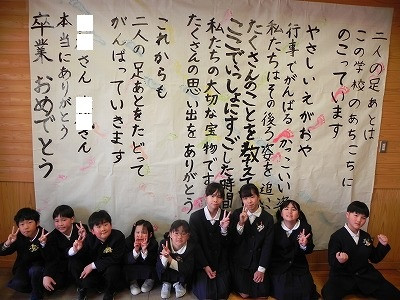 二人の足あとは
この学校のあちこちに
のこっています
やさしいえがおや
行事でがんばるかっこいい姿
私たちはその後ろ姿を追い
たくさんのことを教え
ここでいっしょにすごした時間
私たちの大切な宝物です
たくさんの思い出をありがとう
これからも
二人の足あとをたどって
がんばっていきます
さん さん
本当にありがとう
卒業おめでとう